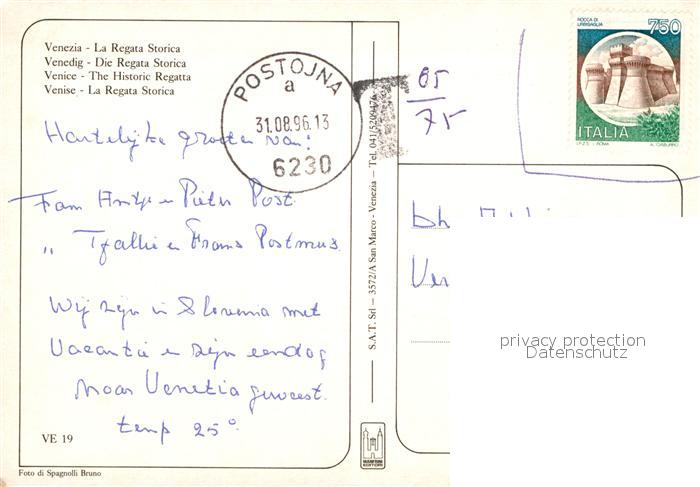 Venezia - La Regata Storica
Venedig - Die Regata Storica
Venice - The Historic Regatta
Venise - La Regata Storica
POSTOJNA
a
31.08.96.13
6230
Hartelijke groeten van!
Fam Antje en Pieter Post.
" Tjallie en Frans Postmus.
Wij zijn in Slovenia met
Vacantie en zijn eendag
Naar Venetia geweest.
temp 25°.
VE 19
Foto di Spagnolli Bruno
S.A.T. Srl - 3572/A San Marco - Venezia - Tel. 041/5209476
85
75
ROCCA DI
URBISAGLIA
750
ITALIA
I.P.Z.S. - ROMA
Dh
privacy protection
Datenschutz